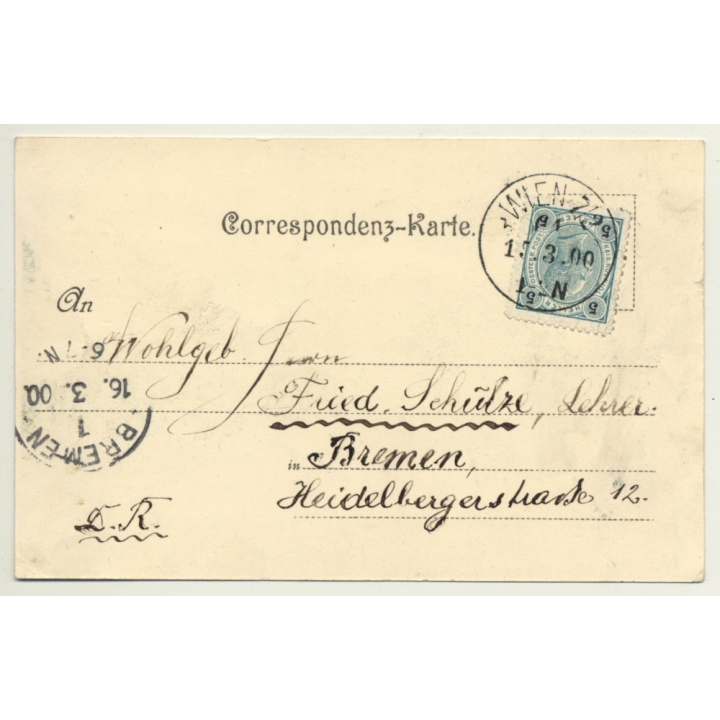 Correspondenz-Karte.
WIEN
1 3.00
-N
5 5
5 5
An
Wohlgeb. Herrn
Fried. Schulze, Lehrer.
in Bremen,
Heidelbergerstrasse 12.
D.R.
BREMEN
1
16. 3. 00
6-7 N.